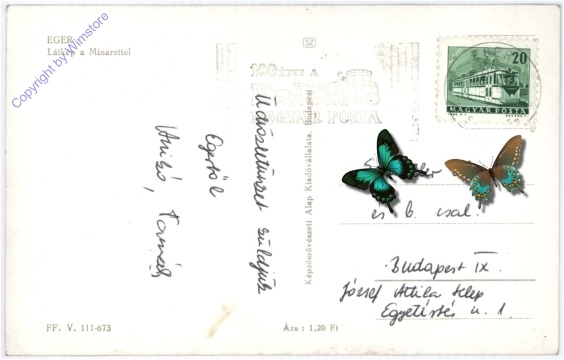 EGER
Látkép a Minarettel
Copyright by Wimstore
100 ÉVES A
MAGYAR POSTA
20
MAGYAR POSTA
Üdvözletünket küldjük
Egerből
Anikó, Tamás
Képzőművészeti Alap Kiadóvállalata, Budapest
és b. csal.
Budapest IX.
József Attila telep
Egyetértés u. 1.
FF. V. 111-673
Ára: 1,20 Ft